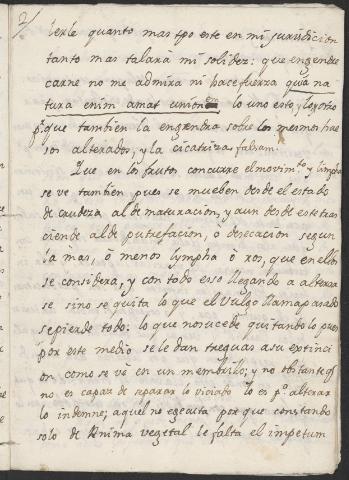 2/
lerle quanto mas tpo este en mi jurisdicion
tanto mas talará mi solidez: que engendre
carne no me admira ni hace fuerza quia na
tura enim amat unionem lo uno esto, y lo otro
pr que tambien la engendra sobre los mesmos hue
sos alterados, y la cicatriza falsam.
Que en los frutos concurre el movimto y limpha
se ve tambien pues se mueben desde el estado
de crudeza al de maturacion, y aun desde este tras
ciende al de putrefacion, ò desecacion segun
la mas, ò menos lympha ò ros, que en ellos
se considera, y con todo esso llegando a alterar
se sino se quita lo que el Vulgo llama pasado
se pierde todo: lo que no sucede quitandolo pues
por este medio se le dan treguas a su extinci
on como se vè en un membrillo; y no obstante qe
no es capaz de reparar lo viciado lo es pa alterar
lo indemne; aquel no egecuta porque constando
solo de Anima vegetal le falta el impetum